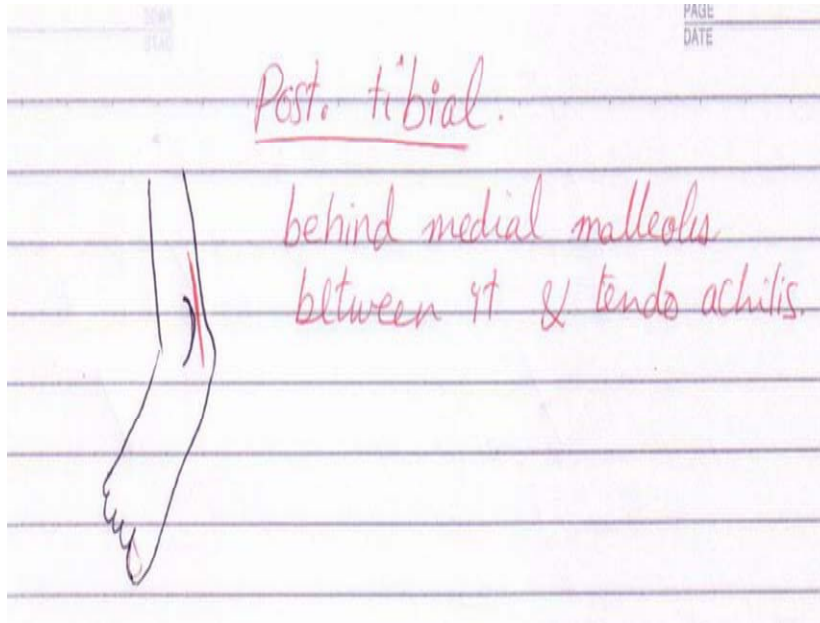 PAGE
DATE
Post. tibial.
behind medial malleolus
between it & tendo achilis.